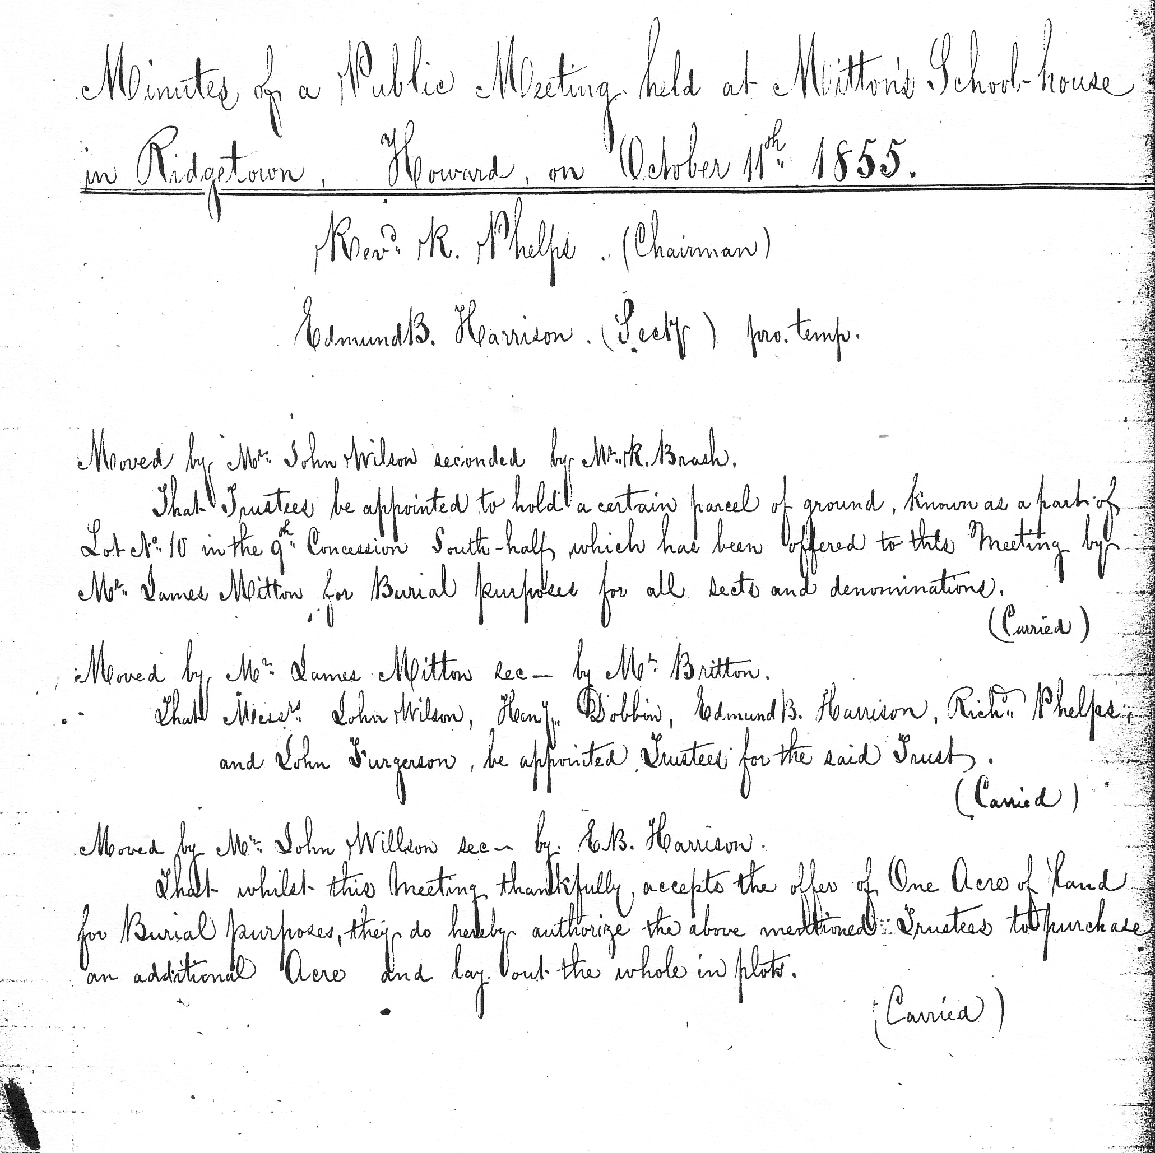 Minutes of a Public Meeting held at Mitton's School-house
in Ridgetown, Howard, on October 11th 1855.
Revd. R. Phelps. (Chairman)
Edmund B. Harrison. (Secty) pro. temp.
Moved by Mr. John Wilson seconded by Mr. R. Brash.
That Trustees be appointed to hold a certain parcel of ground, known as a part of
Lot No. 10 in the 9th Concession South-half, which has been offered to this Meeting by
Mr. James Mitton for Burial purposes for all sects and denominations.
(Carried)
Moved by Mr. James Mitton sec— by Mr. Britton.
That Messrs. John Wilson, Heny. Dobbin, Edmund B. Harrison, Richd. Phelps,
and John Furgerson, be appointed Trustees for the said Trust.
(Carried)
Moved by Mr. John Willson sec— by E.B. Harrison.
That whilst this Meeting thankfully accepts the offer of One Acre of Land
for Burial purposes, they do hereby authorize the above mentioned Trustees to purchase
an additional Acre and lay out the whole in plots.
(Carried)